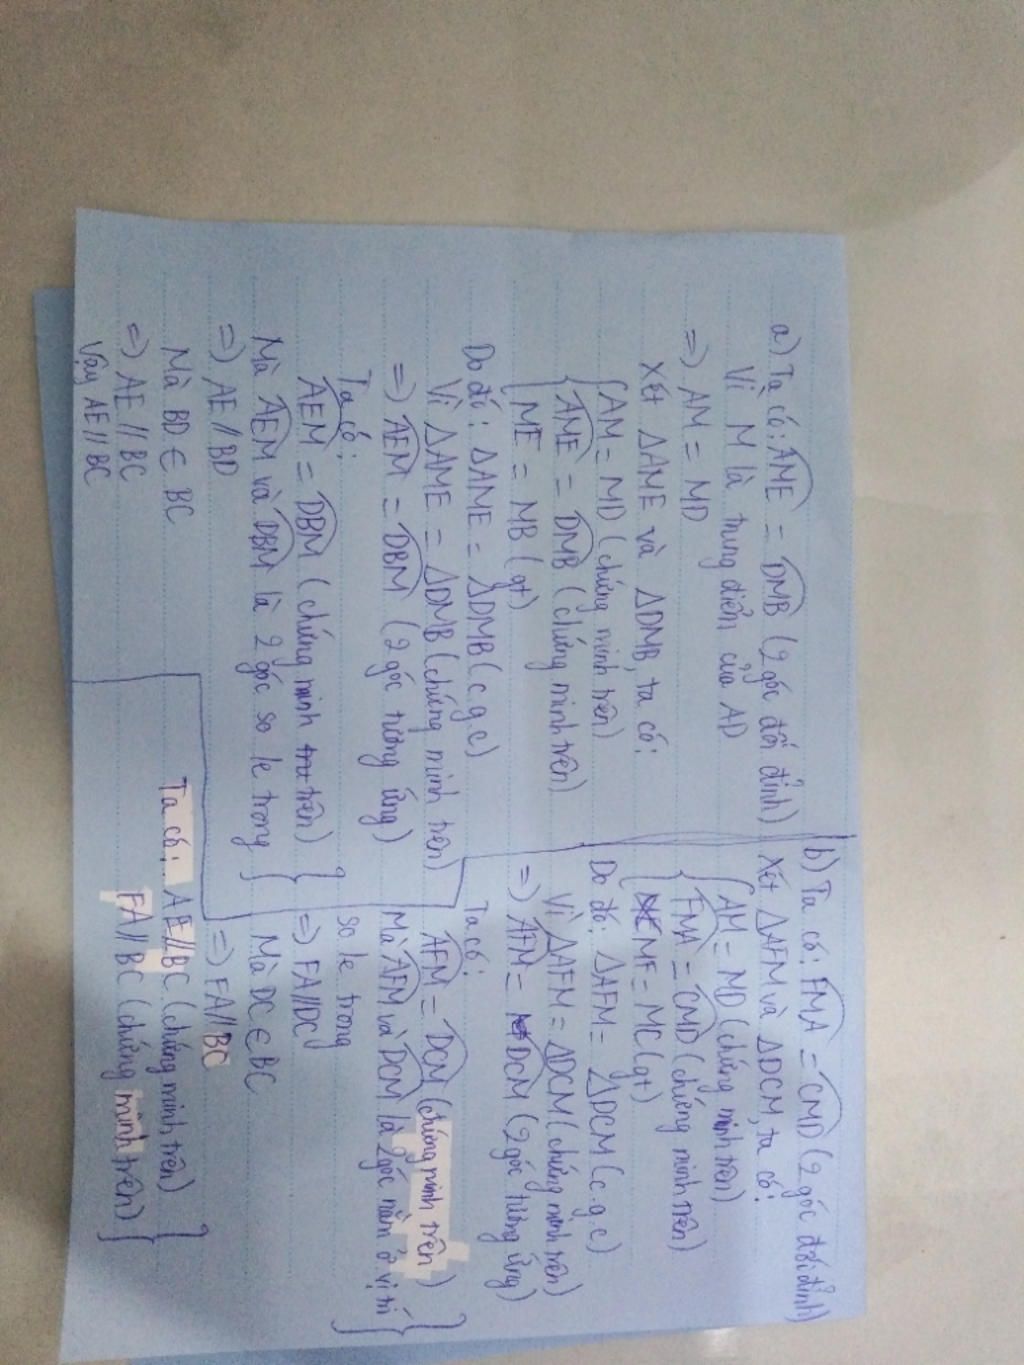 a) Ta có: AME = DMB (2 góc đối đỉnh)
Vì M là trung điểm của AD
=) AM = MD
Xét ΔAME và ΔDMB, ta có:
AM = MD (chứng minh trên)
AME = DMB (chứng minh trên)
ME = MB (gt)
Do đó: ΔAME = ΔDMB (c.g.c)
Vì ΔAME = ΔDMB (chứng minh trên)
=) AEM = DBM (2 góc tương ứng)
Ta có:
AEM = DBM (chứng minh trên)
Mà AEM và DBM là 2 góc so le trong
=) AE // BD
Mà BD ∈ BC
=) AE // BC
Vậy AE // BC
b) Ta có: FMA = CMD (2 góc đối đỉnh)
Xét ΔAFM và ΔDCM, ta có:
AM = MD (chứng minh trên)
FMA = CMD (chứng minh trên)
MF = MC (gt)
Do đó: ΔAFM = ΔDCM (c.g.c)
Vì ΔAFM = ΔDCM (chứng minh trên)
=) AFM = DCM (2 góc tương ứng)
Ta có:
AFM = DCM (chứng minh trên)
Mà AFM và DCM là 2 góc nằm ở vị trí
so le trong
=) FA // DC
Mà DC ∈ BC
=) FA // BC
Ta có: AE // BC (chứng minh trên)
FA // BC (chứng minh trên)